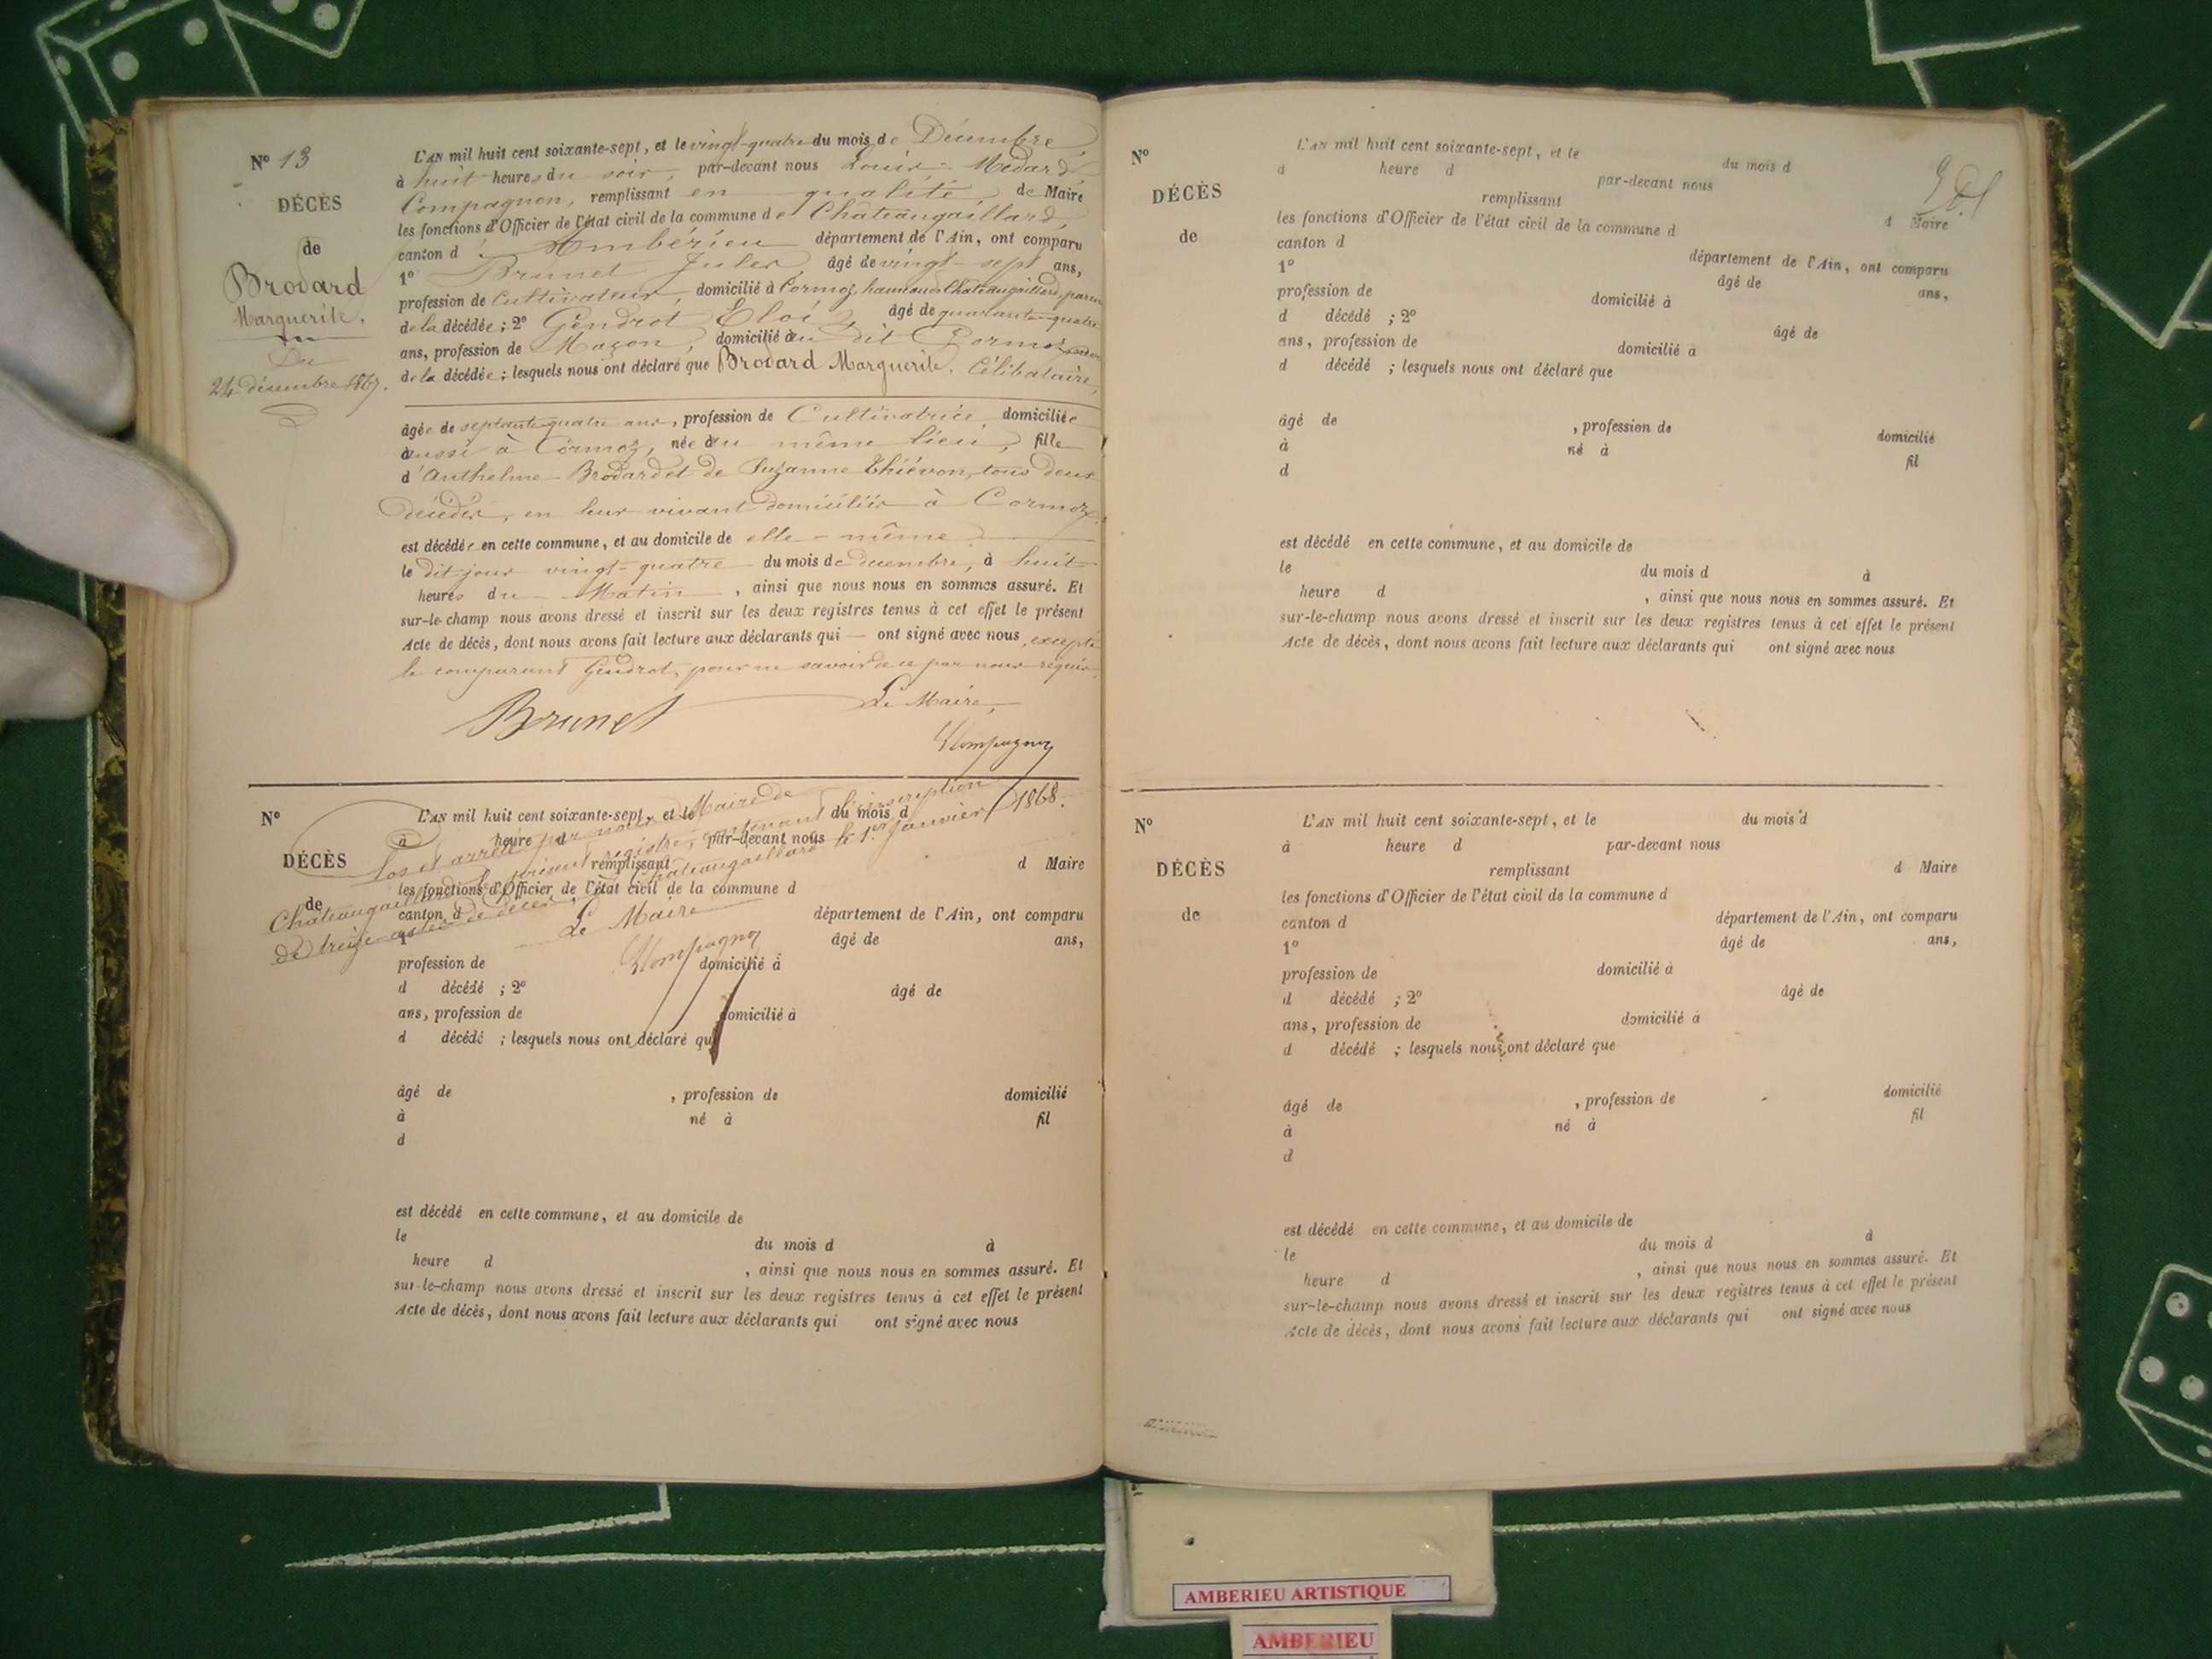 N° 13
DÉCÈS
de
Brodard
Marguerite.
Du
24 décembre 1867.
L'AN mil huit cent soixante-sept, et le vingt-quatre du mois de Décembre,
à huit heures du soir, par-devant nous Louis-Médard
Compagnon, remplissant en qualité de Maire
les fonctions d'Officier de l'état civil de la commune de Châteaugaillard,
canton d' Ambérieu département de l'Ain, ont comparu
1° Brunet Jules, âgé de vingt-sept ans,
profession de Cultivateur, domicilié à Cormoz, hameau de Châteaugaillard,
de la décédée ; 2° Gendrot Eloi, âgé de quarante-quatre
ans, profession de Maçon, domicilié au dit Cormoz
de la décédée ; lesquels nous ont déclaré que Brodard Marguerite. Célibataire,
âgée de septante-quatre ans, profession de Cultivatrice, domiciliée
aussi à Cormoz, née au même lieu, fille
d'Anthelme Brodard et de Suzanne Thiévon, tous deux
décédés, en leur vivant domiciliés à Cormoz,
est décédée en cette commune, et au domicile de elle-même
le dit jour vingt-quatre du mois de décembre, à huit
heures du Matin, ainsi que nous nous en sommes assuré. Et
sur-le-champ nous avons dressé et inscrit sur les deux registres tenus à cet effet le présent
Acte de décès, dont nous avons fait lecture aux déclarants qui — ont signé avec nous, excepté
le comparant Gendrot, pour ne savoir de ce par nous requis.
Brunet
Le Maire,
Compagnon
N°
DÉCÈS
de
L'AN mil huit cent soixante-sept, et le du mois d
à heure d par-devant nous
remplissant d Maire
les fonctions d'Officier de l'état civil de la commune d
canton d département de l'Ain, ont comparu
1° âgé de ans,
profession de domicilié à
d décédé ; 2° âgé de
ans, profession de domicilié à
d décédé ; lesquels nous ont déclaré que
âgé de , profession de domicilié
à né à fil
d
est décédé en cette commune, et au domicile de
le du mois d à
heure d , ainsi que nous nous en sommes assuré. Et
sur-le-champ nous avons dressé et inscrit sur les deux registres tenus à cet effet le présent
Acte de décès, dont nous avons fait lecture aux déclarants qui ont signé avec nous
Clos et arrêté par nous Maire de
Châteaugaillard le présent registre, contenant l'inscription
de treize actes de décès. Châteaugaillard le 1er Janvier 1868.
Le Maire
Compagnon
N°
DÉCÈS
de
L'AN mil huit cent soixante-sept, et le du mois d
à heure d par-devant nous
remplissant d Maire
les fonctions d'Officier de l'état civil de la commune d
canton d département de l'Ain, ont comparu
1° âgé de ans,
profession de domicilié à
d décédé ; 2° âgé de
ans, profession de domicilié à
d décédé ; lesquels nous ont déclaré que
âgé de , profession de domicilié
à né à fil
d
est décédé en cette commune, et au domicile de
le du mois d à
heure d , ainsi que nous nous en sommes assuré. Et
sur-le-champ nous avons dressé et inscrit sur les deux registres tenus à cet effet le présent
Acte de décès, dont nous avons fait lecture aux déclarants qui ont signé avec nous
N°
DÉCÈS
de
L'AN mil huit cent soixante-sept, et le du mois d
à heure d par-devant nous
remplissant d Maire
les fonctions d'Officier de l'état civil de la commune d
canton d département de l'Ain, ont comparu
1° âgé de ans,
profession de domicilié à
d décédé ; 2° âgé de
ans, profession de domicilié à
d décédé ; lesquels nous ont déclaré que
âgé de , profession de domicilié
à né à fil
d
est décédé en cette commune, et au domicile de
le du mois d à
heure d , ainsi que nous nous en sommes assuré. Et
sur-le-champ nous avons dressé et inscrit sur les deux registres tenus à cet effet le présent
Acte de décès, dont nous avons fait lecture aux déclarants qui ont signé avec nous
AMBERIEU ARTISTIQUE
AMBERIEU